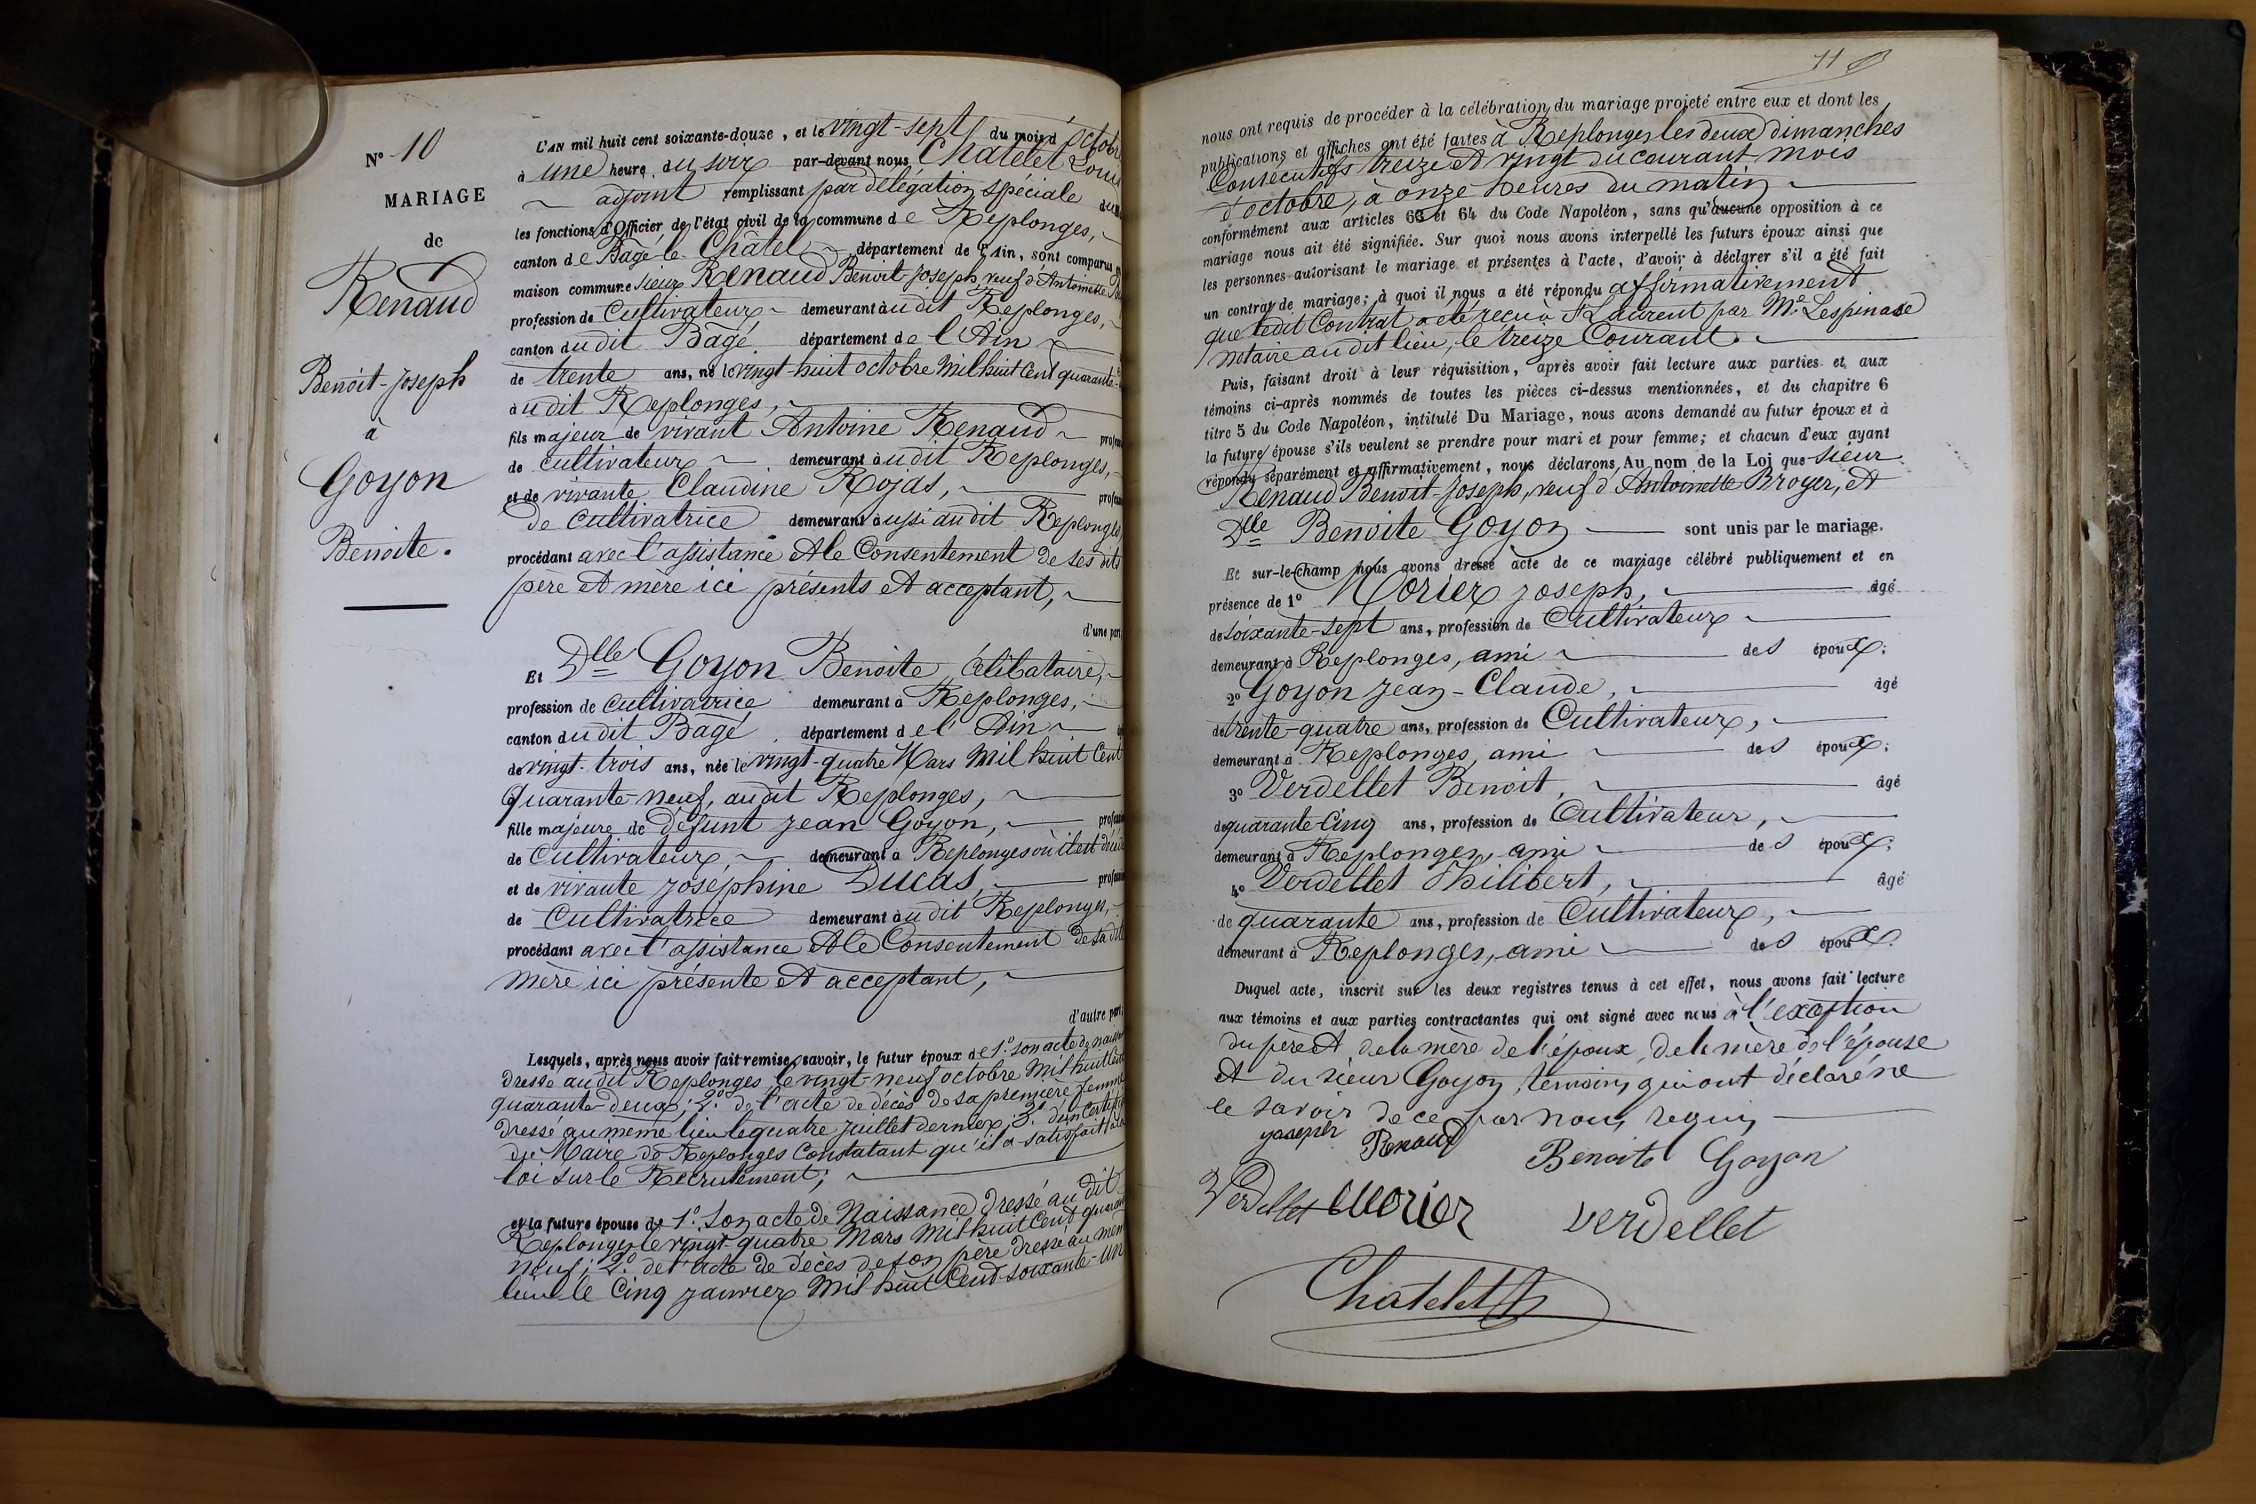 N° 10
MARIAGE
de
Renaud
Benoit-Joseph
à
Goyon
Benoite.
L'AN mil huit cent soixante-douze, et le vingt-sept du mois d'octobre
à une heure du soir par-devant nous Chatelet Louis
adjoint remplissant par délégation spéciale
les fonctions d'Officier de l'état civil de la commune de Replonges,
canton de Bâgé-le-Châtel département de l'Ain, sont comparus
maison commune sieur Renaud Benoit-Joseph, veuf d'Antoinette
profession de Cultivateur demeurant audit Replonges,
canton dudit Bagé département de l'Ain
de trente ans, né le vingt-huit octobre mil huit cent quarante-
audit Replonges,
fils majeur de vivant Antoine Renaud
de cultivateur demeurant audit Replonges,
et de vivante Claudine Rojas,
de cultivatrice demeurant aussi audit Replonges
procédant avec l'assistance et le Consentement de ses dits
père et mère ici présents et acceptant,
d'une part,
Et Dlle Goyon Benoite, célibataire,
profession de cultivatrice demeurant à Replonges,
canton dudit Bagé département de l'Ain
de vingt-trois ans, née le vingt-quatre Mars mil huit cent
quarante-neuf, audit Replonges,
fille majeure de défunt Jean Goyon,
de Cultivateur, demeurant à Replonges où il est décédé
et de vivante Joséphine Ducas,
de Cultivatrice demeurant audit Replonges,
procédant avec l'assistance et le Consentement de sa dite
mère ici présente et acceptant,
d'autre part,
Lesquels, après nous avoir fait remise, savoir, le futur époux de 1° son acte de naissance
dressé audit Replonges le vingt-neuf octobre mil huit cent
quarante-deux; 2° de l'acte de décès de sa première femme
dressé au même lieu le quatre juillet dernier; 3° d'un certificat
du Maire de Replonges Constatant qu'il a satisfait à la
loi sur le Recrutement;
et la future épouse de 1° son acte de Naissance dressé audit
Replonges le vingt-quatre Mars mil huit cent quarante
neuf; 2° de l'acte de décès de son père dressé au même
lieu le Cinq janvier mil huit cent soixante-un
11
nous ont requis de procéder à la célébration du mariage projeté entre eux et dont les
publications et affiches ont été faites à Replonges les deux dimanches
Consécutifs treize et vingt du courant mois
d'octobre, à onze heures du matin
conformément aux articles 63 et 64 du Code Napoléon, sans qu'aucune opposition à ce
mariage nous ait été signifiée. Sur quoi nous avons interpellé les futurs époux ainsi que
les personnes autorisant le mariage et présentes à l'acte, d'avoir à déclarer s'il a été fait
un contrat de mariage; à quoi il nous a été répondu affirmativement
que ledit Contrat a été reçu à St Laurent par Me Lespinasse
notaire audit lieu, le treize Courant.
Puis, faisant droit à leur réquisition, après avoir fait lecture aux parties et aux
témoins ci-après nommés de toutes les pièces ci-dessus mentionnées, et du chapitre 6
titre 5 du Code Napoléon, intitulé Du Mariage, nous avons demandé au futur époux et à
la future épouse s'ils veulent se prendre pour mari et pour femme; et chacun d'eux ayant
répondu séparément et affirmativement, nous déclarons, Au nom de la Loi que sieur
Renaud Benoit-Joseph, veuf d'Antoinette Broyer, et
Dlle Benoite Goyon sont unis par le mariage.
Et sur-le-champ nous avons dressé acte de ce mariage célébré publiquement et en
présence de 1° Morier Joseph, âgé
de soixante-sept ans, profession de Cultivateur
demeurant à Replonges, ami des époux;
2° Goyon Jean-Claude, âgé
de trente-quatre ans, profession de Cultivateur,
demeurant à Replonges, ami des époux;
3° Verdellet Benoit, âgé
de quarante-cinq ans, profession de Cultivateur,
demeurant à Replonges, ami des époux;
4° Verdellet Philibert, âgé
de quarante ans, profession de Cultivateur,
demeurant à Replonges, ami des époux.
Duquel acte, inscrit sur les deux registres tenus à cet effet, nous avons fait lecture
aux témoins et aux parties contractantes qui ont signé avec nous à l'exception
du père et de la mère de l'époux, de la mère de l'épouse
et du sieur Goyon, témoin, qui ont déclaré ne
le savoir de ce par nous requis
joseph Renaud Benoite Goyon
Verdellet Morier verdellet
Chatelet